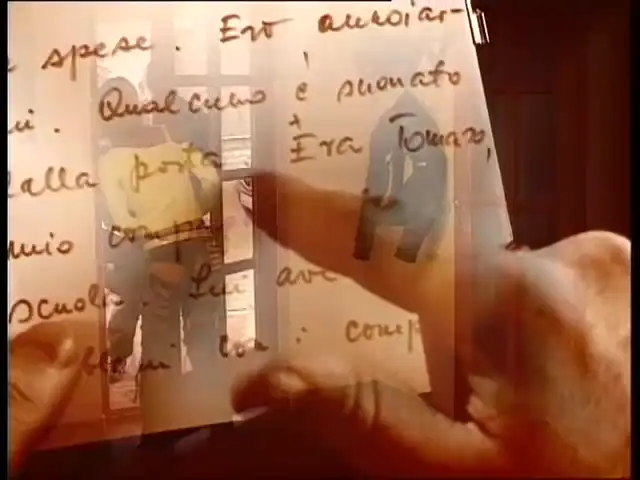 spese. Ero annoiar-
ni. Qualcuno è suonato
dalla porta + Era Tomazo,
mio comp
scuola. Lui ave
con i comp